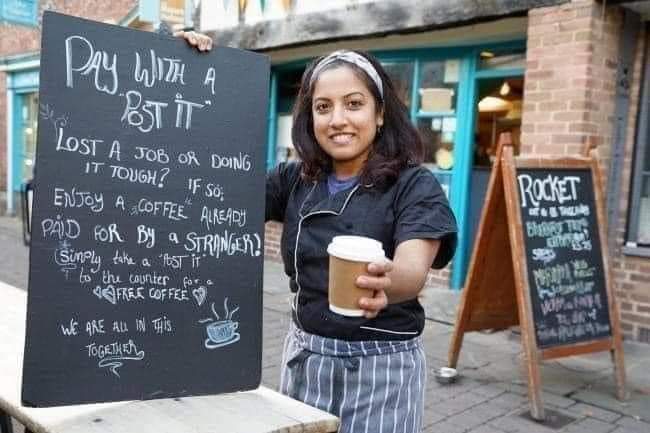 PAY WITH A
"POST IT"
LOST A JOB OR DOING
IT TOUGH? IF SO,
ENJOY A "COFFEE" ALREADY
PAID FOR BY a STRANGER!
(Simply take a "POST IT"
to the counter for a
FREE COFFEE
WE ARE ALL IN THIS
TOGETHER
ROCKET